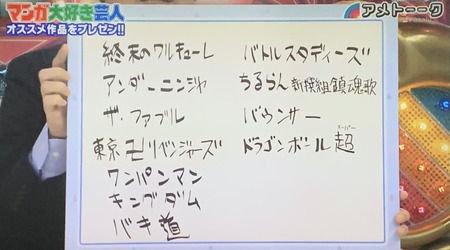 マンガ大好き芸人
オススメ作品をプレゼン!!
アメトーーク
終末のワルキューレ
アンダーニンジャ
ザ・ファブル
東京卍リベンジャーズ
ワンパンマン
キングダム
バキ道
バトルスタディーズ
ちるらん 新撰組鎮魂歌
バウンサー
ドラゴンボール超
スーパー